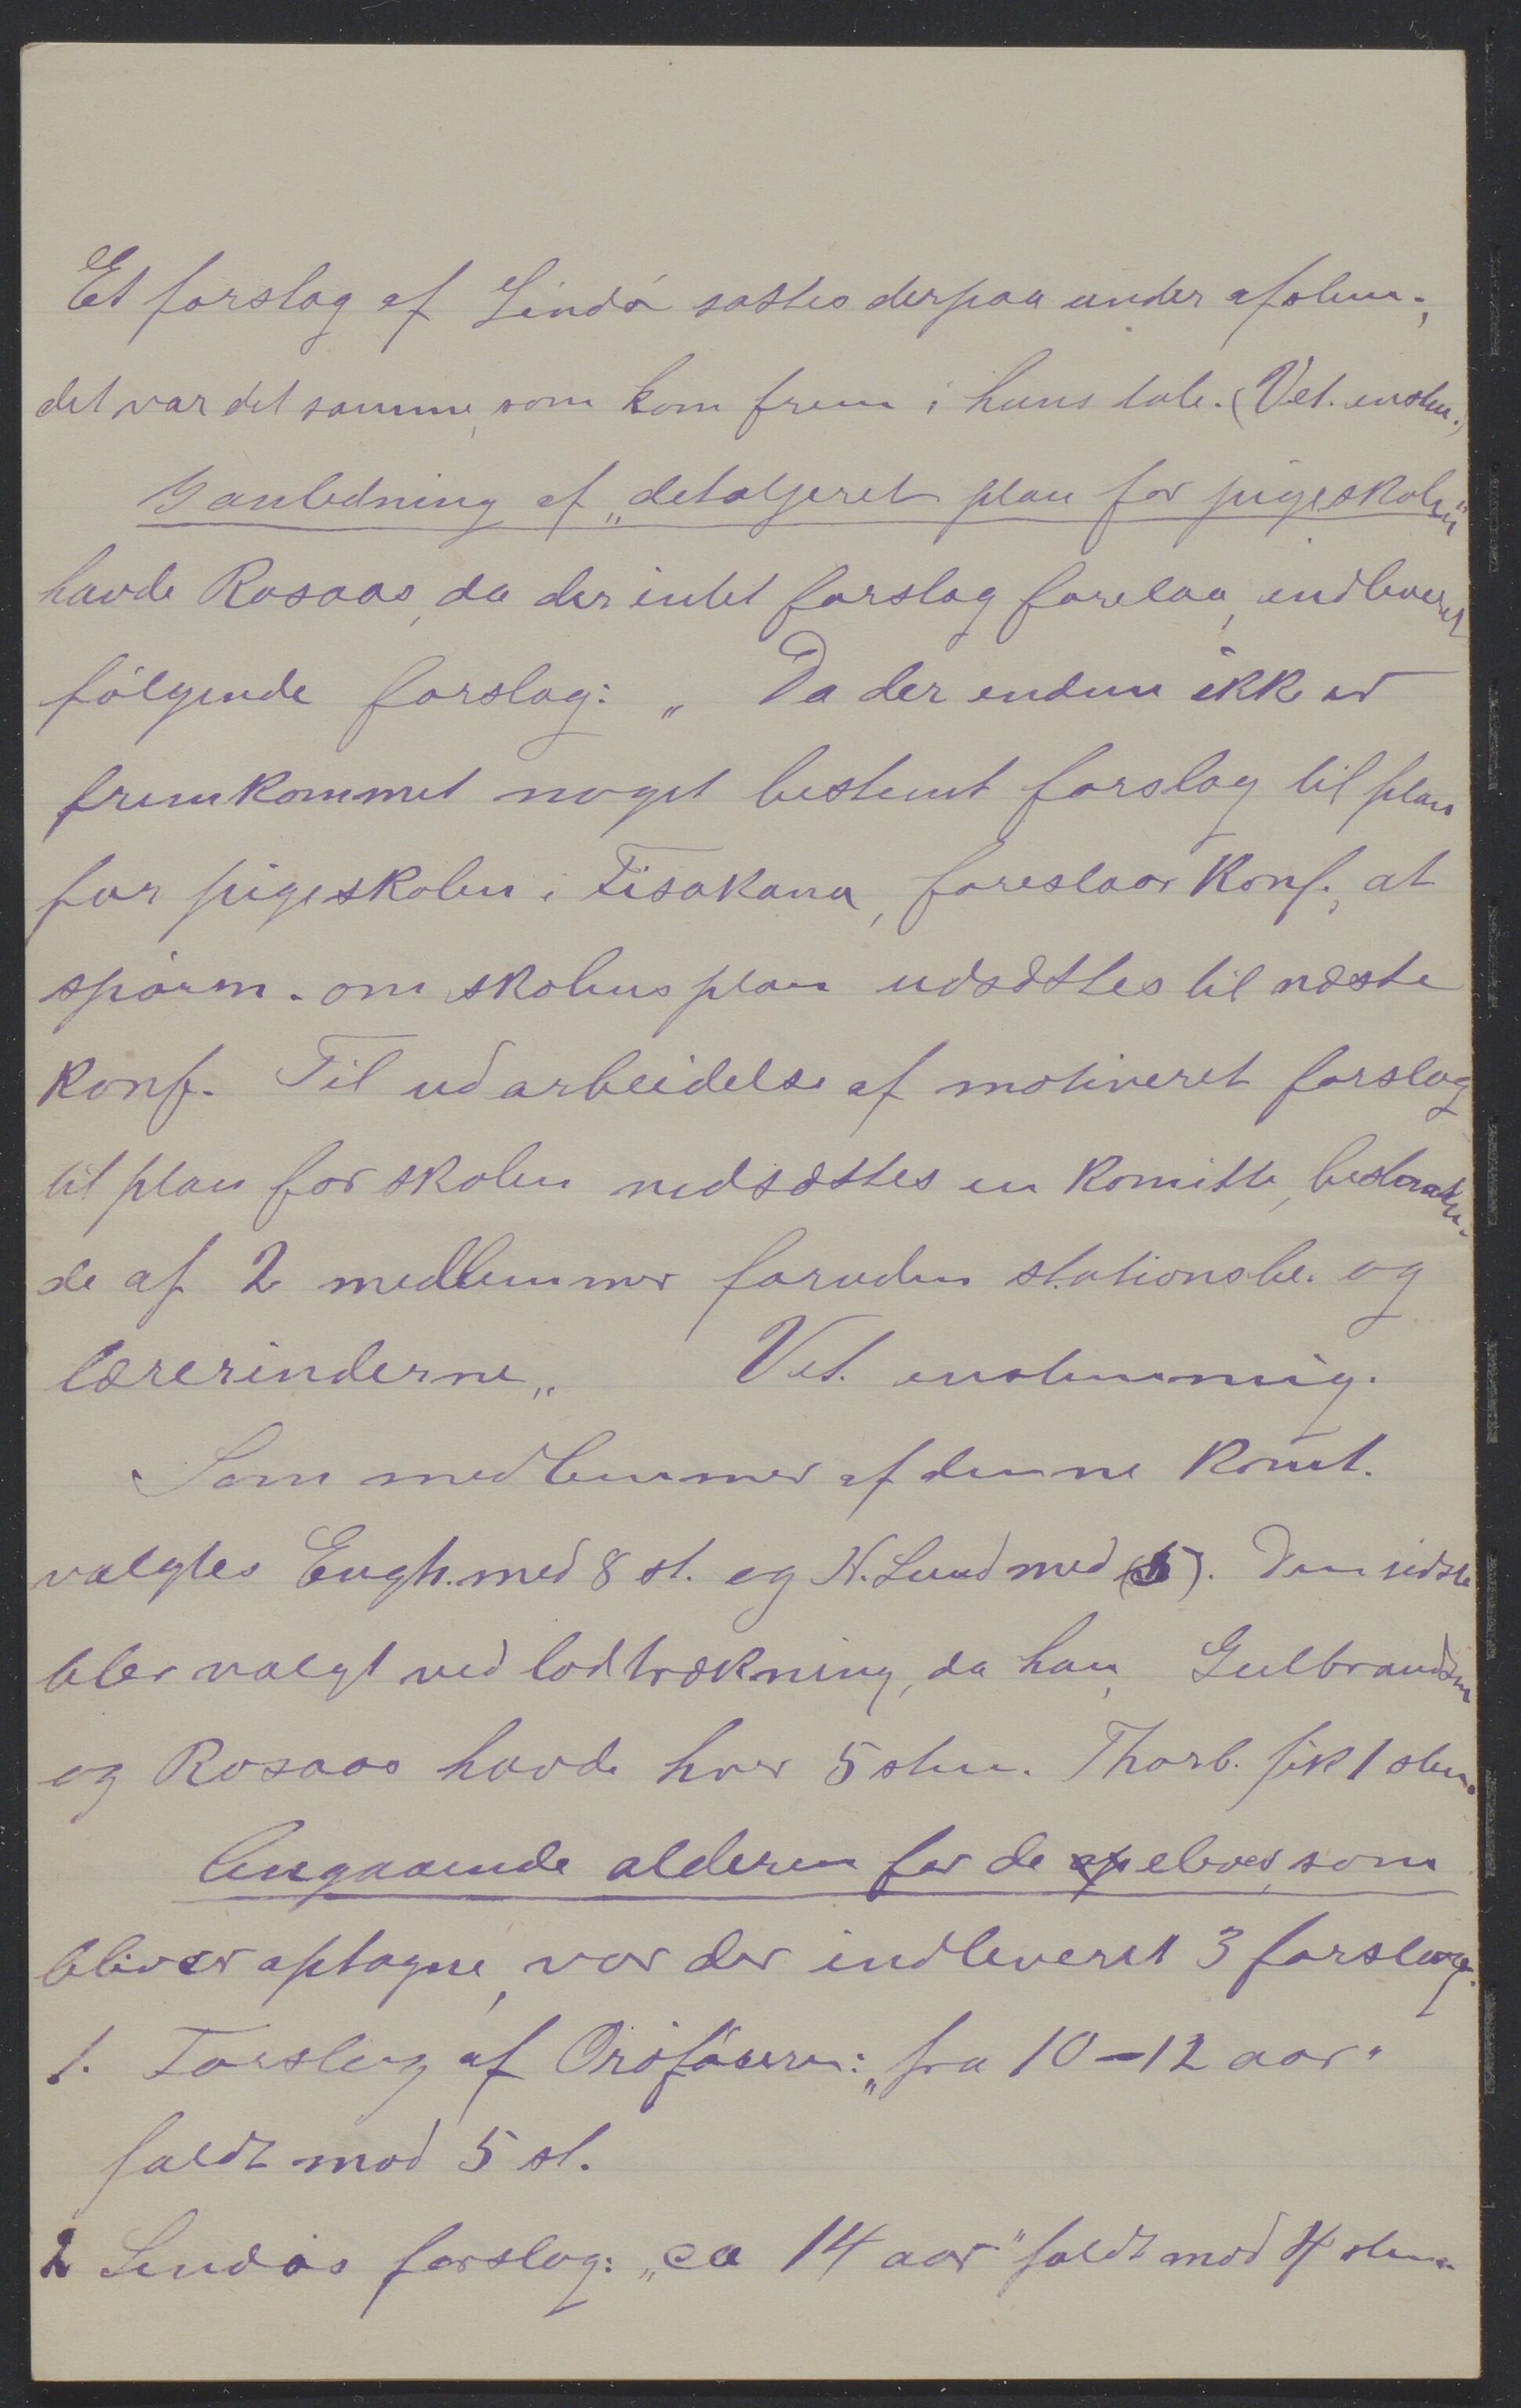 Et forslag af Lindö sattes derpaa under afstem.;
det var det samme, som kom frem i hans tale. (Vet. enstem.)
I anledning af „detaljeret plan for pigeskolen"
havde Rosaas, da der intet forslag forelaa, indleveret
følgende forslag: „ Da der endnu ikke er
fremkommet noget bestemt forslag til plan
for pigeskolen i Fisakana, foreslaar Konf., at
spörsm. om skolens plan udsættes til næste
Konf. Til udarbeidelse af motiveret forslag
til plan for skolen nedsættes en Komitte, bestaaen-
de af 2 medlemmer foruden stationsbe. og
lærerinderne„ Vet. enstemmig.
Som medlemmer af denne Komt.
valgtes Engh. med 8 st. og N. Lund med (5). Den sidste
blev valgt ved lodtrækning, da han, Gulbrandsen
og Rosaas havde hver 5 stm. Thorb. fik 1 stm.
Angaaende alderen for de elever, som
bliver optagne, var der indleveret 3 forslag.
1. Forslag af : „fra 10-12 aar"
faldt mod 5 st.
2 Lindös forslag: „ca 14 aar" faldt mod 4 stm.